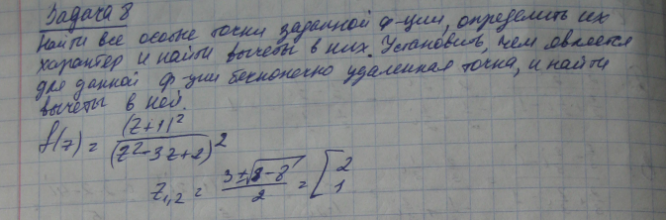 Задача 8
Найти все особые точки заданной ф-ции, определить их
характер и найти вычеты в них. Установить, чем является
для данной ф-ции бесконечно удаленная точка, и найти
вычеты в ней.
f(z) = (z+1)² / (z²-3z+2)²
z₁,₂ = (3±√9-8) / 2 = [2 1